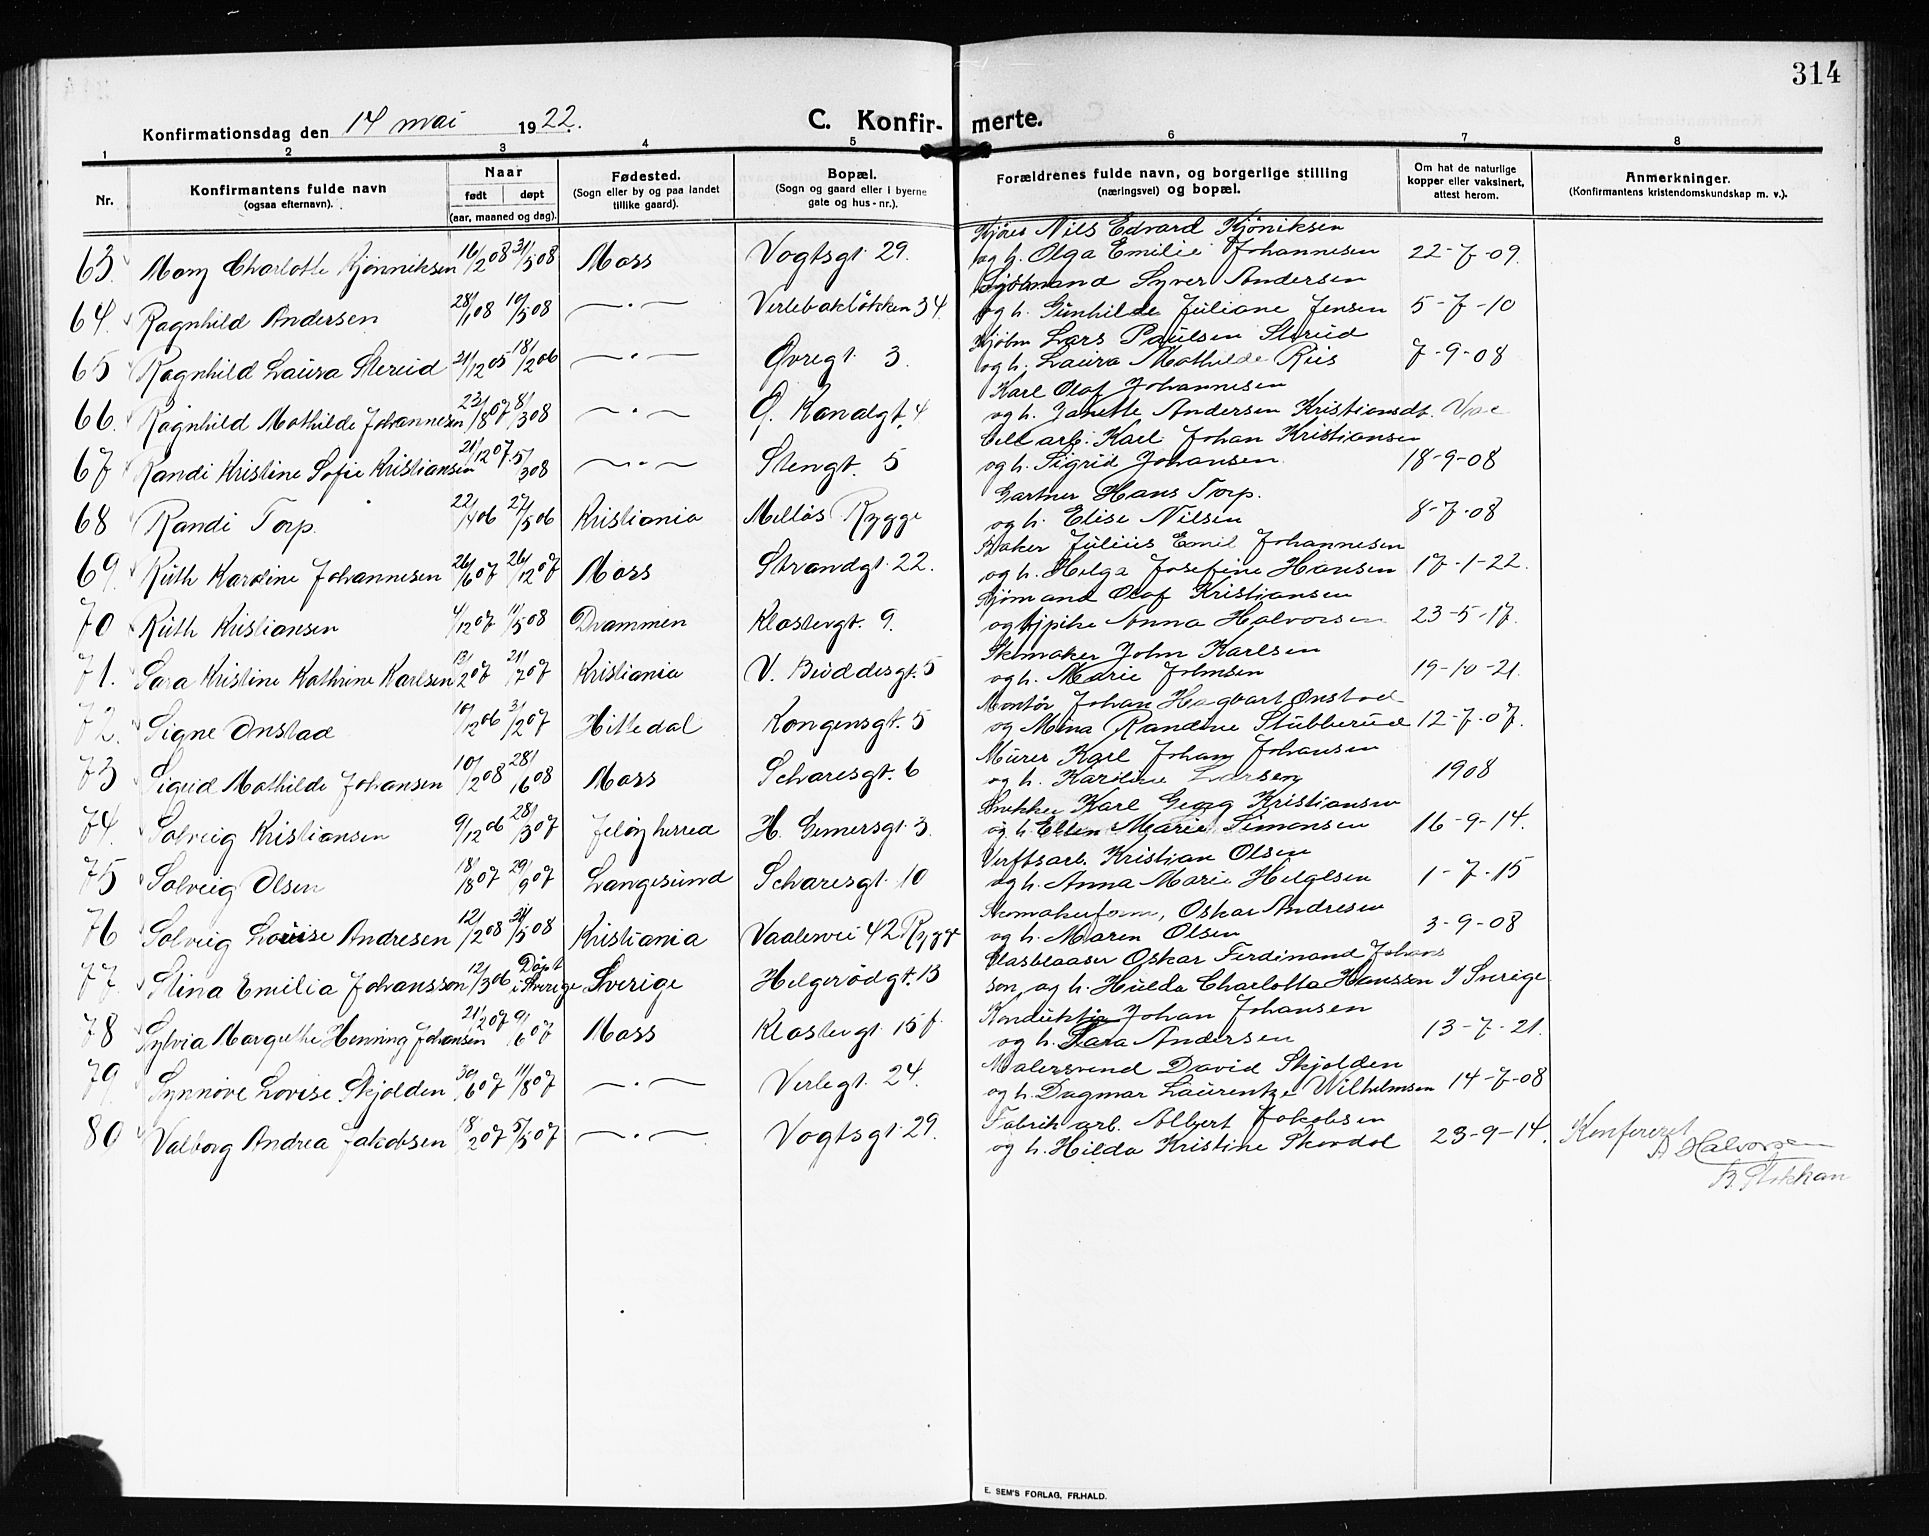 314
Konfirmationsdag den 14 mai 1922.
C. Konfirmerte.
1 2 3 4 5 6 7 8
Nr.
Konfirmantens fulde navn
(ogsaa efternavn).
Naar
født døpt
(aar, maaned og dag).
Fødested.
(Sogn eller by og paa landet
tillike gaard).
Bopæl.
(Sogn og gaard eller i byerne
gate og hus-nr.).
Forældrenes fulde navn, og borgerlige stilling
(næringsvei) og bopæl.
Om hat de naturlige
kopper eller vaksinert,
attest herom.
Anmerkninger.
(Konfirmantens kristendomskundskap m. v.).
Nils Edvard Kjöniksen
63. Mary Charlotte Kjönniksen 16/2 08 31/5 08 Moss Vogtsgt. 29. og h. Olga Emilie Johannesen 22-7-09.
Sjömand Syver Andersen
64. Ragnhild Andersen 28/1 08 10/5 08 —·— Verlebakløkken 34. og h. Gunhilde Juliane Jensen 5-7-10
Lars Paulsen Sterud
65 Ragnhild Laura Sterud 21/12 05 18/2 06 —·— Øvregt. 3. og h. Laura Mathilde Riis 7-9-08
Karl Olaf Johannesen
66. Ragnhild Mathilde Johannesen 23/8 07 8/3 08 —·— Ø. Kanalgt. 4 og h. Janette Andersen Kristiansdt.
arb. Karl Johan Kristiansen
67 Randi Kristine Sofie Kristiansen 21/12 07. 5/3 08 —·— Stengt. 5 og h. Sigrid Johansen. 18-9-08
Gartner Hans Torp.
68 Randi Torp. 22/4 06 27/5 06 Kristiania Melløs Rygge og h. Elise Nilsen 8-7-08
Baker Julius Emil Johannesen
69. Ruth Karoline Johannesen 26/6 07 26/12 07 Moss Strandgt. 22. og h. Helga Josefine Hansen 17-1-22.
Sjömand Olaf Kristiansen
70 Ruth Kristiansen 4/12 07 11/5 08 Drammen Klostergt. 9. og pike Anna Halvorsen 23-5-17.
Skomaker John Karlsen
71. Sara Kristine Kathrine Karlsen 13/2 07 21/7 07 Kristiania V. Buddesgt. 5 og h. Marie Johnsen 19-10-21.
Montör Johan Hagbart Onstad
72. Signe Onstad 10/12 06 3/2 07 Hittedal Kongensgt. 5 og Mina Randine Stubberud 12-7-07.
Murer Karl Johan Johansen
73 Sigrid Mathilde Johansen 10/2 08 28/6 08 Moss Scharesgt. 6 og h. Karoline Larsen 1908
Snekker Karl Georg Kristiansen
74. Solveig Kristiansen 9/12 06 28/3 07 Jeløy herred H. Gernersgt. 3. og h. Ellen Marie Simonsen 16-9-14.
Verftsarb. Kristian Olsen
75 Solveig Olsen 18/8 07 29/9 07 Langesund Scharesgt. 10 og h. Anna Marie Helgesen 1-7-15
Skomakerform. Oskar Andresen
76 Solveig Louise Andresen 12/2 08 31/5 08 Kristiania Vaalervei 42 Rygge og h. Maren Olsen 3-9-08
Glasblaaser Oskar Ferdinand Johans
77. Stina Emilia Johansson 12/3 06 Døpt i Sverige Sverige Helgerødgt. 13 son, og h. Hulda Charlotta Hansson I Sverige
Konduktør Johan Johansen
78 Sylvia Margrethe Henning Johansen 21/2 07 9/6 07 Moss Klostergt. 15 f. og h. Sara Andersen 13-7-21.
Malersvend David Skjolden
79. Synnöve Lovise Skjolden 30/6 07 11/8 07 —·— Verlegt. 24. og h. Dagmar Laurentze Wilhelmsen 14-7-08
Fabrik arb. Albert Jakobsen
80 Valborg Andrea Jakobsen 18/2 07 5/5 07 —·— Vogtsgt. 29. og h. Hilda Kristine Skordal 23-9-14. Konfereret
A Halvorsen
B. Stokkan
E. SEM'S FORLAG, FR.HALD.